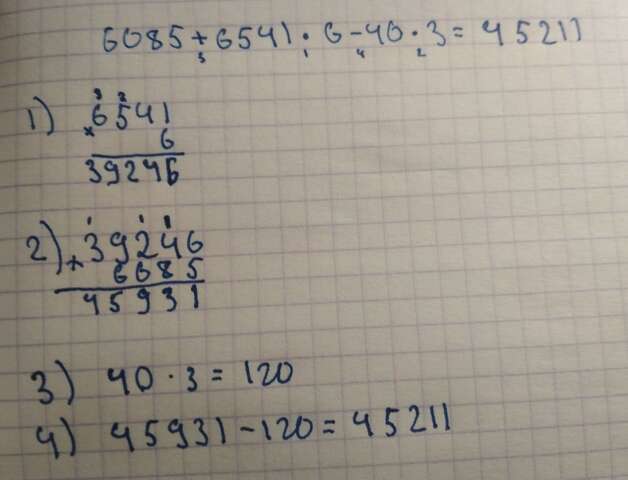 6085+6541·6-40·3=45211
3 1 4 2
3 2
1) 6541
× 6
39246
1 1 1
2) 39246
+ 6685
45931
3) 40·3=120
4) 45931-120=45211